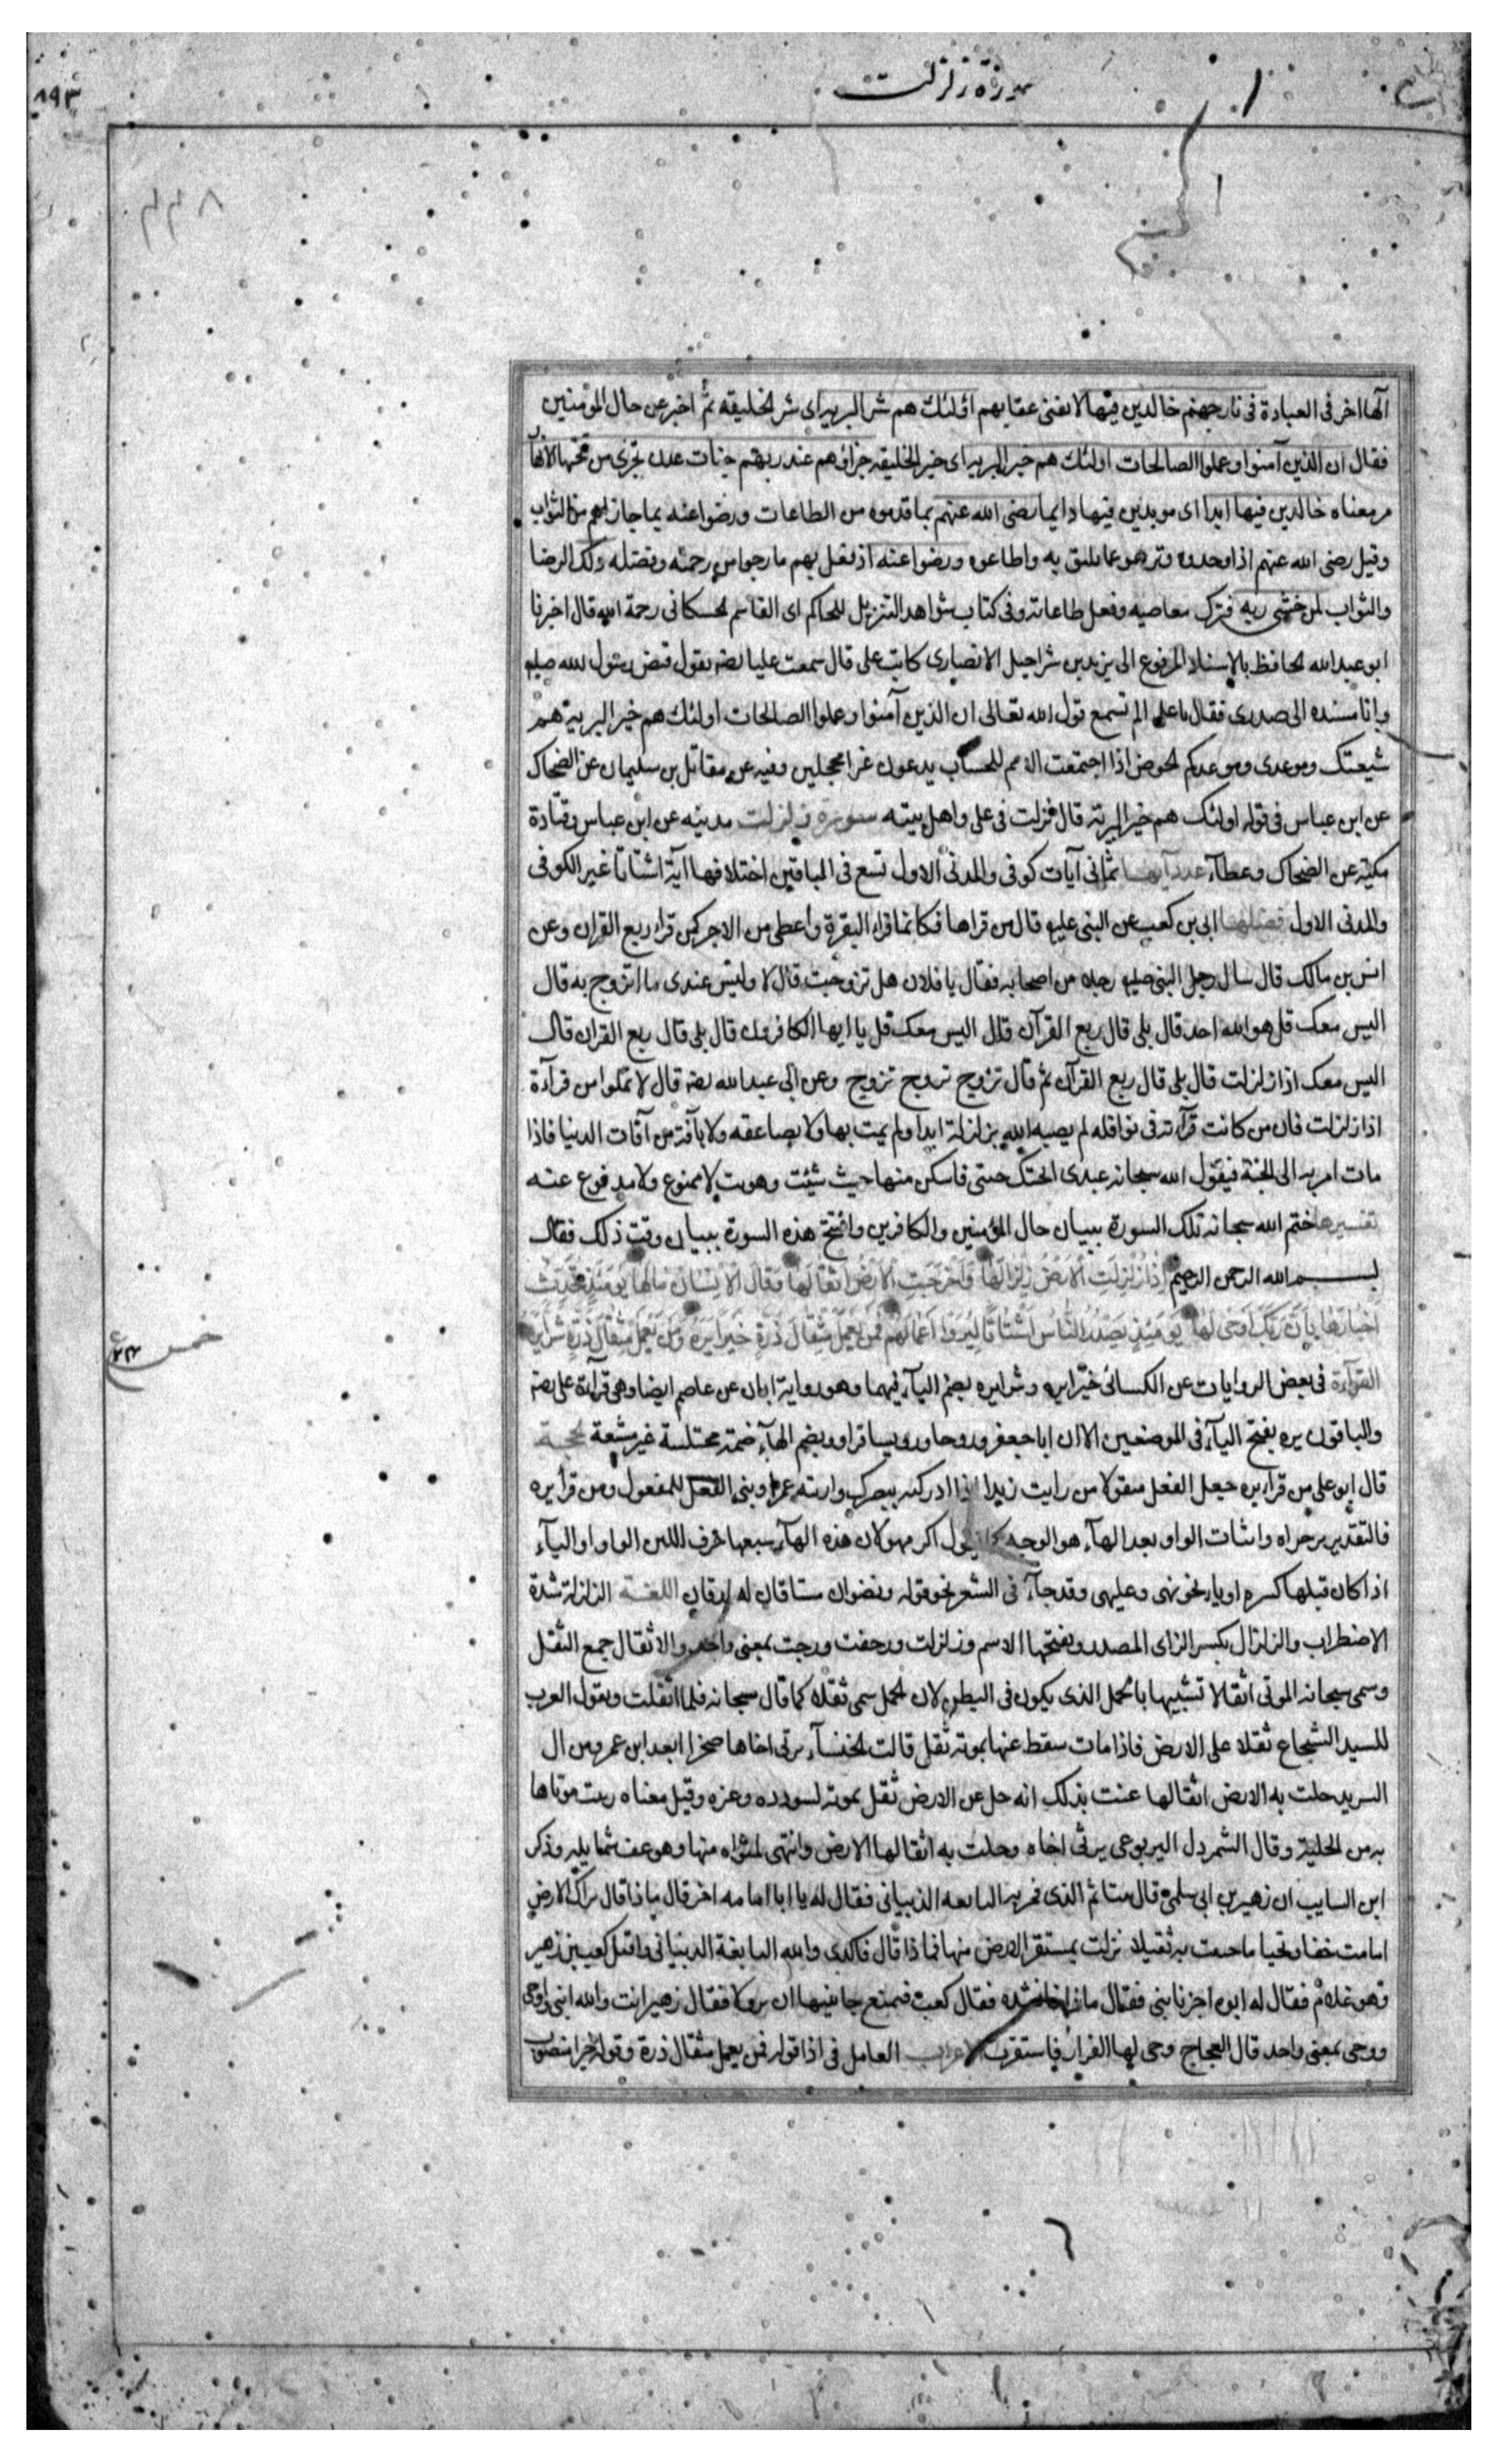 سورة زلزلت
٨٩٣
آلها اخر فى العبادة فى نار جهنم خالدين فيها لا يفنى عقابهم اولئك هم شر البرية اى شر الخليقه ثم اخبر عن حال المؤمنين
فقال ان الذين آمنوا وعملوا الصالحات اولئك هم خير البرية اى خير الخليقه جزاؤهم عند ربهم جنات عدن تجرى من تحتها الانها
ر معناه خالدين فيها ابدا اى موبدين فيها دايما رضى الله عنهم بما قدموه من الطاعات ورضوا عنه بما جازاهم من الثواب
وقيل رضى الله عنهم اذ اوحدوه ونزهوه عما يليق به واطاعوه ورضوا عنه اذ فعل بهم ما رجوا من رحمته وفضله ذلك الرضا
والثواب لمن خشى ربه فترك معاصيه وفعل طاعاته وفى كتاب شواهد التنزيل للحاكم ابى القاسم الحسكانى رحمة الله قال اخبرنا
ابو عبد الله الحافظ بالاسناد المرفوع الى يزيد بن شراحيل الانصارى كاتب على قال سمعت عليا يقول قبض رسول الله صلعم
وانا مسنده الى صدرى فقال يا على الم تسمع قول الله تعالى ان الذين آمنوا وعملوا الصالحات اولئك هم خير البرية هم
شيعتك وموعدى وموعدكم الحوض اذا اجتمعت الامم للحساب يدعون غرا محجلين وفيه عن مقاتل بن سليمان عن الضحاك
عن ابن عباس فى قوله اولئك هم خير البرية قال نزلت فى على واهل بيته سورة زلزلت مدنيه عن ابن عباس وقتادة
مكية عن الضحاك وعطآء عدد آيها ثمانى آيات كوفى والمدنى الاول تسع فى الباقين اختلافها آية اشتاتا غير الكوفى
والمدنى الاول فضلها ابى بن كعب عن النبى عليه قال من قراها فكانما قرا البقرة واعطى من الاجر كمن قرا ربع القران وعن
انس بن مالك قال سال رجل النبى صلعم رجلا من اصحابه فقال يا فلان هل تزوجت قال لا وليس عندى ما اتزوج به قال
اليس معك قل هو الله احد قال بلى قال ربع القرآن قال اليس معك قل يا ايها الكافرون قال بلى قال ربع القران قال
اليس معك اذا زلزلت قال بلى قال ربع القرآن ثم قال تزوج تزوج تزوج وعن ابى عبد الله قال لا تملوا من قرآءة
اذا زلزلت فان من كانت قرآءته فى نوافله لم يصبه الله بزلزلة ابدا ولم يمت بها ولا بصاعقه ولا بآفة من آفات الدنيا فاذا
مات امر به الى الجنة فيقول الله سبحانه عبدى ابحتك جنتى فاسكن منها حيث شئت وهويت لا ممنوع ولا مدفوع عنه
تفسيرها ختم الله سبحانه تلك السورة ببيان حال المؤمنين والكافرين وافتتح هذه السورة ببيان وقت ذلك فقال
بسم الله الرحمن الرحيم اِذَا زُلْزِلَتِ الْاَرْضُ زِلْزَالَهَا وَاَخْرَجَتِ الْاَرْضُ اَثْقَالَهَا وَقَالَ الْاِنْسَانُ مَالَهَا يَوْمَئِذٍ تُحَدِّثُ
اَخْبَارَهَا بِاَنَّ رَبَّكَ اَوْحَى لَهَا يَوْمَئِذٍ يَصْدُرُ النَّاسُ اَشْتَاتًا لِيُرَوْا اَعْمَالَهُمْ فَمَنْ يَعْمَلْ مِثْقَالَ ذَرَّةٍ خَيْرًا يَرَهُ وَمَنْ يَعْمَلْ مِثْقَالَ ذَرَّةٍ شَرًّا يَرَهُ
خمس
القرآءة فى بعض الروايات عن الكسائى خيرا يره وشرا يره بضم اليآء فيهما وهو رواية ابان عن عاصم ايضا وهى قرآءة على
والباقون يره بفتح اليآء فى الموضعين الا ان ابا جعفر وروحا ورويسا قراوه بضم الهآء ضمة مختلسة غير مشبعة الحجة
قال ابو على من قرا يره جعل الفعل منقولا من رايت زيدا اذا ادركته ببصرك واريته عمرا وبنى الفعل للمفعول ومن قرا يره
فالتقدير ير جزاه واثبات الواو بعد الهآء هو الوجه كما تقول اكرمهو لان هذه الهآء يتبعها حرف اللين الواو او اليآء
اذا كان قبلها كسره او يا نحو بهى وعليهى وقد جآء فى الشعر نحو قوله ونضوان مشتاقان له ارقان اللغة الزلزلة شدة
الاضطراب والزلزال بكسر الزاى المصدر وبفتحها الاسم وزلزلت ورجفت ورجت بمعنى واحد والاثقال جمع الثقل
وسمى سبحانه الموتى اثقالا تشبيها بالحمل الذى يكون فى البطن لان الحمل سمى ثقلا كما قال سبحانه فلما اثقلت ويقول العرب
للسيد الشجاع ثقلا على الارض فاذا مات سقط عنها بموته ثقل قالت الخنسآء ترثى اخاها صخرا ابعد ابن عمرو من ال
الشريد حلت به الارض اثقالها عنت بذلك انه حل عن الارض ثقل بموته لسودده وعزه وقيل معناه زينت موتاها
به من الحلية وقال الشمردل اليربوعى يرثى اخاه وحلت به اثقالها الارض وانتهى لمثواه منها وهو عف شمايله وذكر
ابن السايب ان زهير بن ابى سلمى قال بيتا ثم اكدى فمر به النابغه الذبيانى فقال له يا ابا امامه اجز قال ماذا قال تراك الارض
اما مت خفا وتحيا ما حييت به ثقيلا نزلت بمستقر الارض منها فماذا قال فاكدى والله النابغة الذبيانى واقبل كعب بن زهير
وهو غلام فقال له ابوه اجز يا بنى فقال ماذا فانشده فقال كعب فتمنع جانبيها ان يزولا فقال زهير انت والله ابنى واوحى
ووحى بمعنى واحد قال العجاج وحى لها القرار فاستقرت الاعراب العامل فى اذا قوله فمن يعمل مثقال ذرة وقوله خيرا منصوب